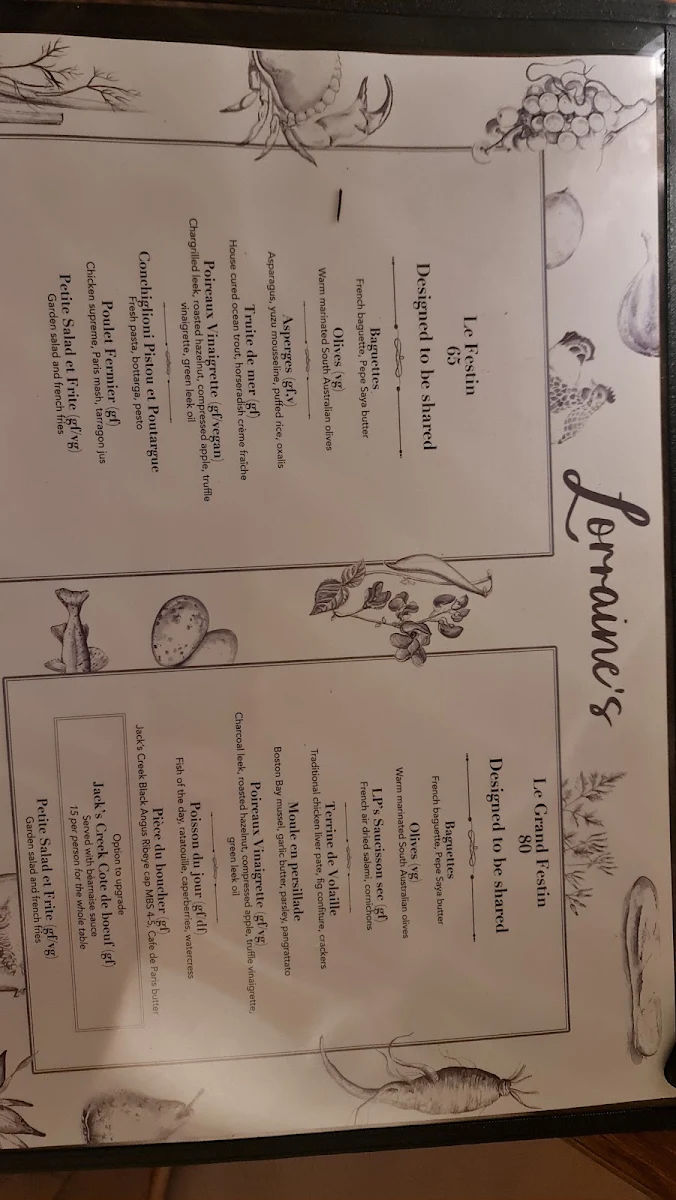 Lorraine's
Le Festin
65
Designed to be shared
Baguettes
French baguette, Pepe Saya butter
Olives (vg)
Warm marinated South Australian olives
Asperges (gf,v)
Asparagus, yuzu mousseline, puffed rice, oxalis
Truite de mer (gf)
House cured ocean trout, horseradish crème fraîche
Poireaux Vinaigrette (gf/vegan)
Chargrilled leek, roasted hazelnut, compressed apple, truffle
vinaigrette, green leek oil
Conchiglioni Pistou et Poutargue
Fresh pasta, bottarga, pesto
Poulet Fermier (gf)
Chicken supreme, Paris mash, tarragon jus
Petite Salad et Frite (gf/vg)
Garden salad and french fries
Le Grand Festin
80
Designed to be shared
Baguettes
French baguette, Pepe Saya butter
Olives (vg)
Warm marinated South Australian olives
LP's Saucisson sec (gf)
French air dried salami, cornichons
Terrine de Volaille
Traditional chicken liver pate, fig confiture, crackers
Moule en persillade
Boston Bay mussel, garlic butter, parsley, pangrattato
Poireaux Vinaigrette (gf/vg)
Charcoal leek, roasted hazelnut, compressed apple, truffle vinaigrette,
green leek oil
Poisson du jour (gf/df)
Fish of the day, ratatouille, caperberries, watercress
Pièce du boucher (gf)
Jack's Creek Black Angus Ribeye cap MB5 4-5, Cafe de Paris butter
Option to upgrade
Jack's Creek Cote de boeuf (gf)
Served with béarnaise sauce
15 per person for the whole table
Petite Salad et Frite (gf/vg)
Garden salad and french fries